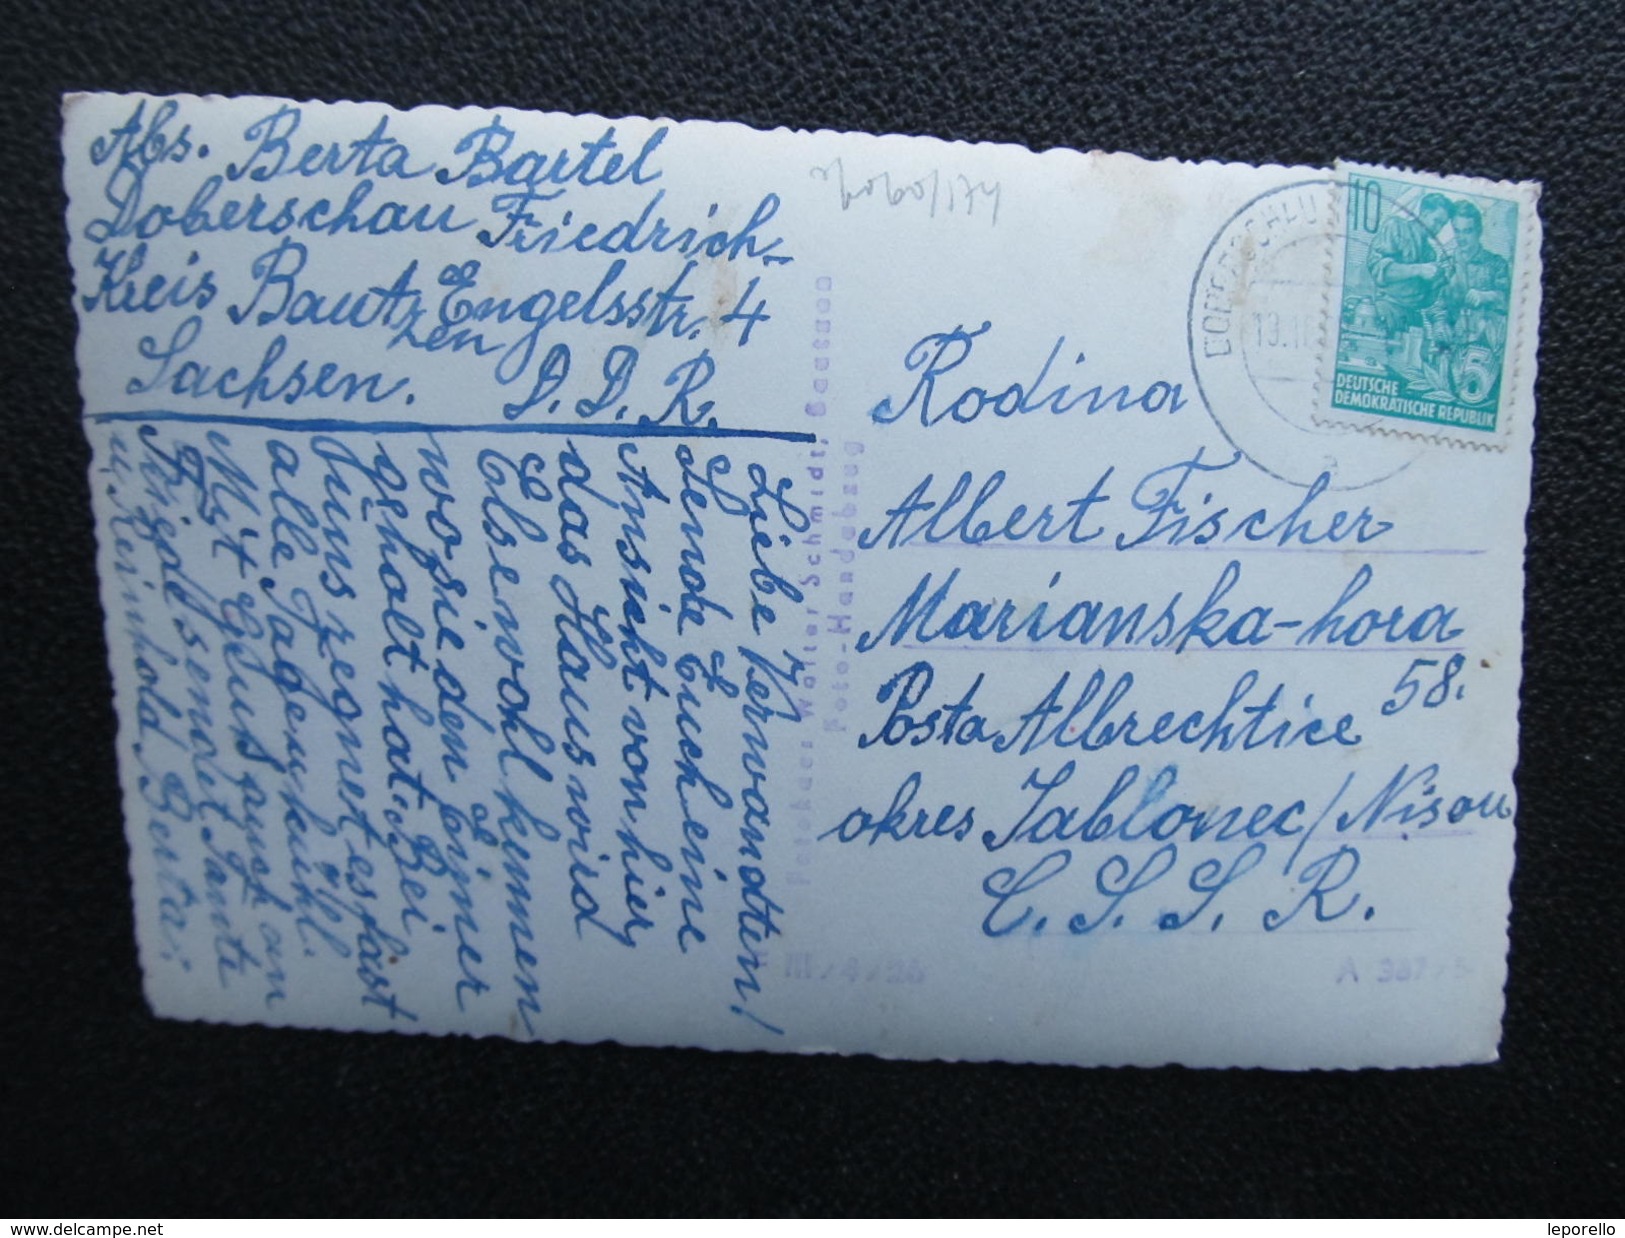 Abs. Berta Bartel
Doberschau Friedrich-
Kreis Bautzen Engelsstr. 4
Sachsen. D. D. R.
Liebe Verwandten!
Sende Euch eine
Ansicht von hier
das Haus wird
Else wohl kennen
wo sie den Eimer
geholt hat. Bei
uns regnet es fast
alle Tage u. kühl.
Mit Gruß auch an
Friedel sendet Tante
u. Reinhold Berta.
Walter Schmidt, Bautzen
Foto-Handabzug
III/4/26
Rodina
Albert Fischer
Marianska-hora
58.
Posta Albrechtice
okres Jablonec/Nisou
C. S. S. R.
10
5
DEUTSCHE
DEMOKRATISCHE REPUBLIK
leporello
© www.delcampe.net